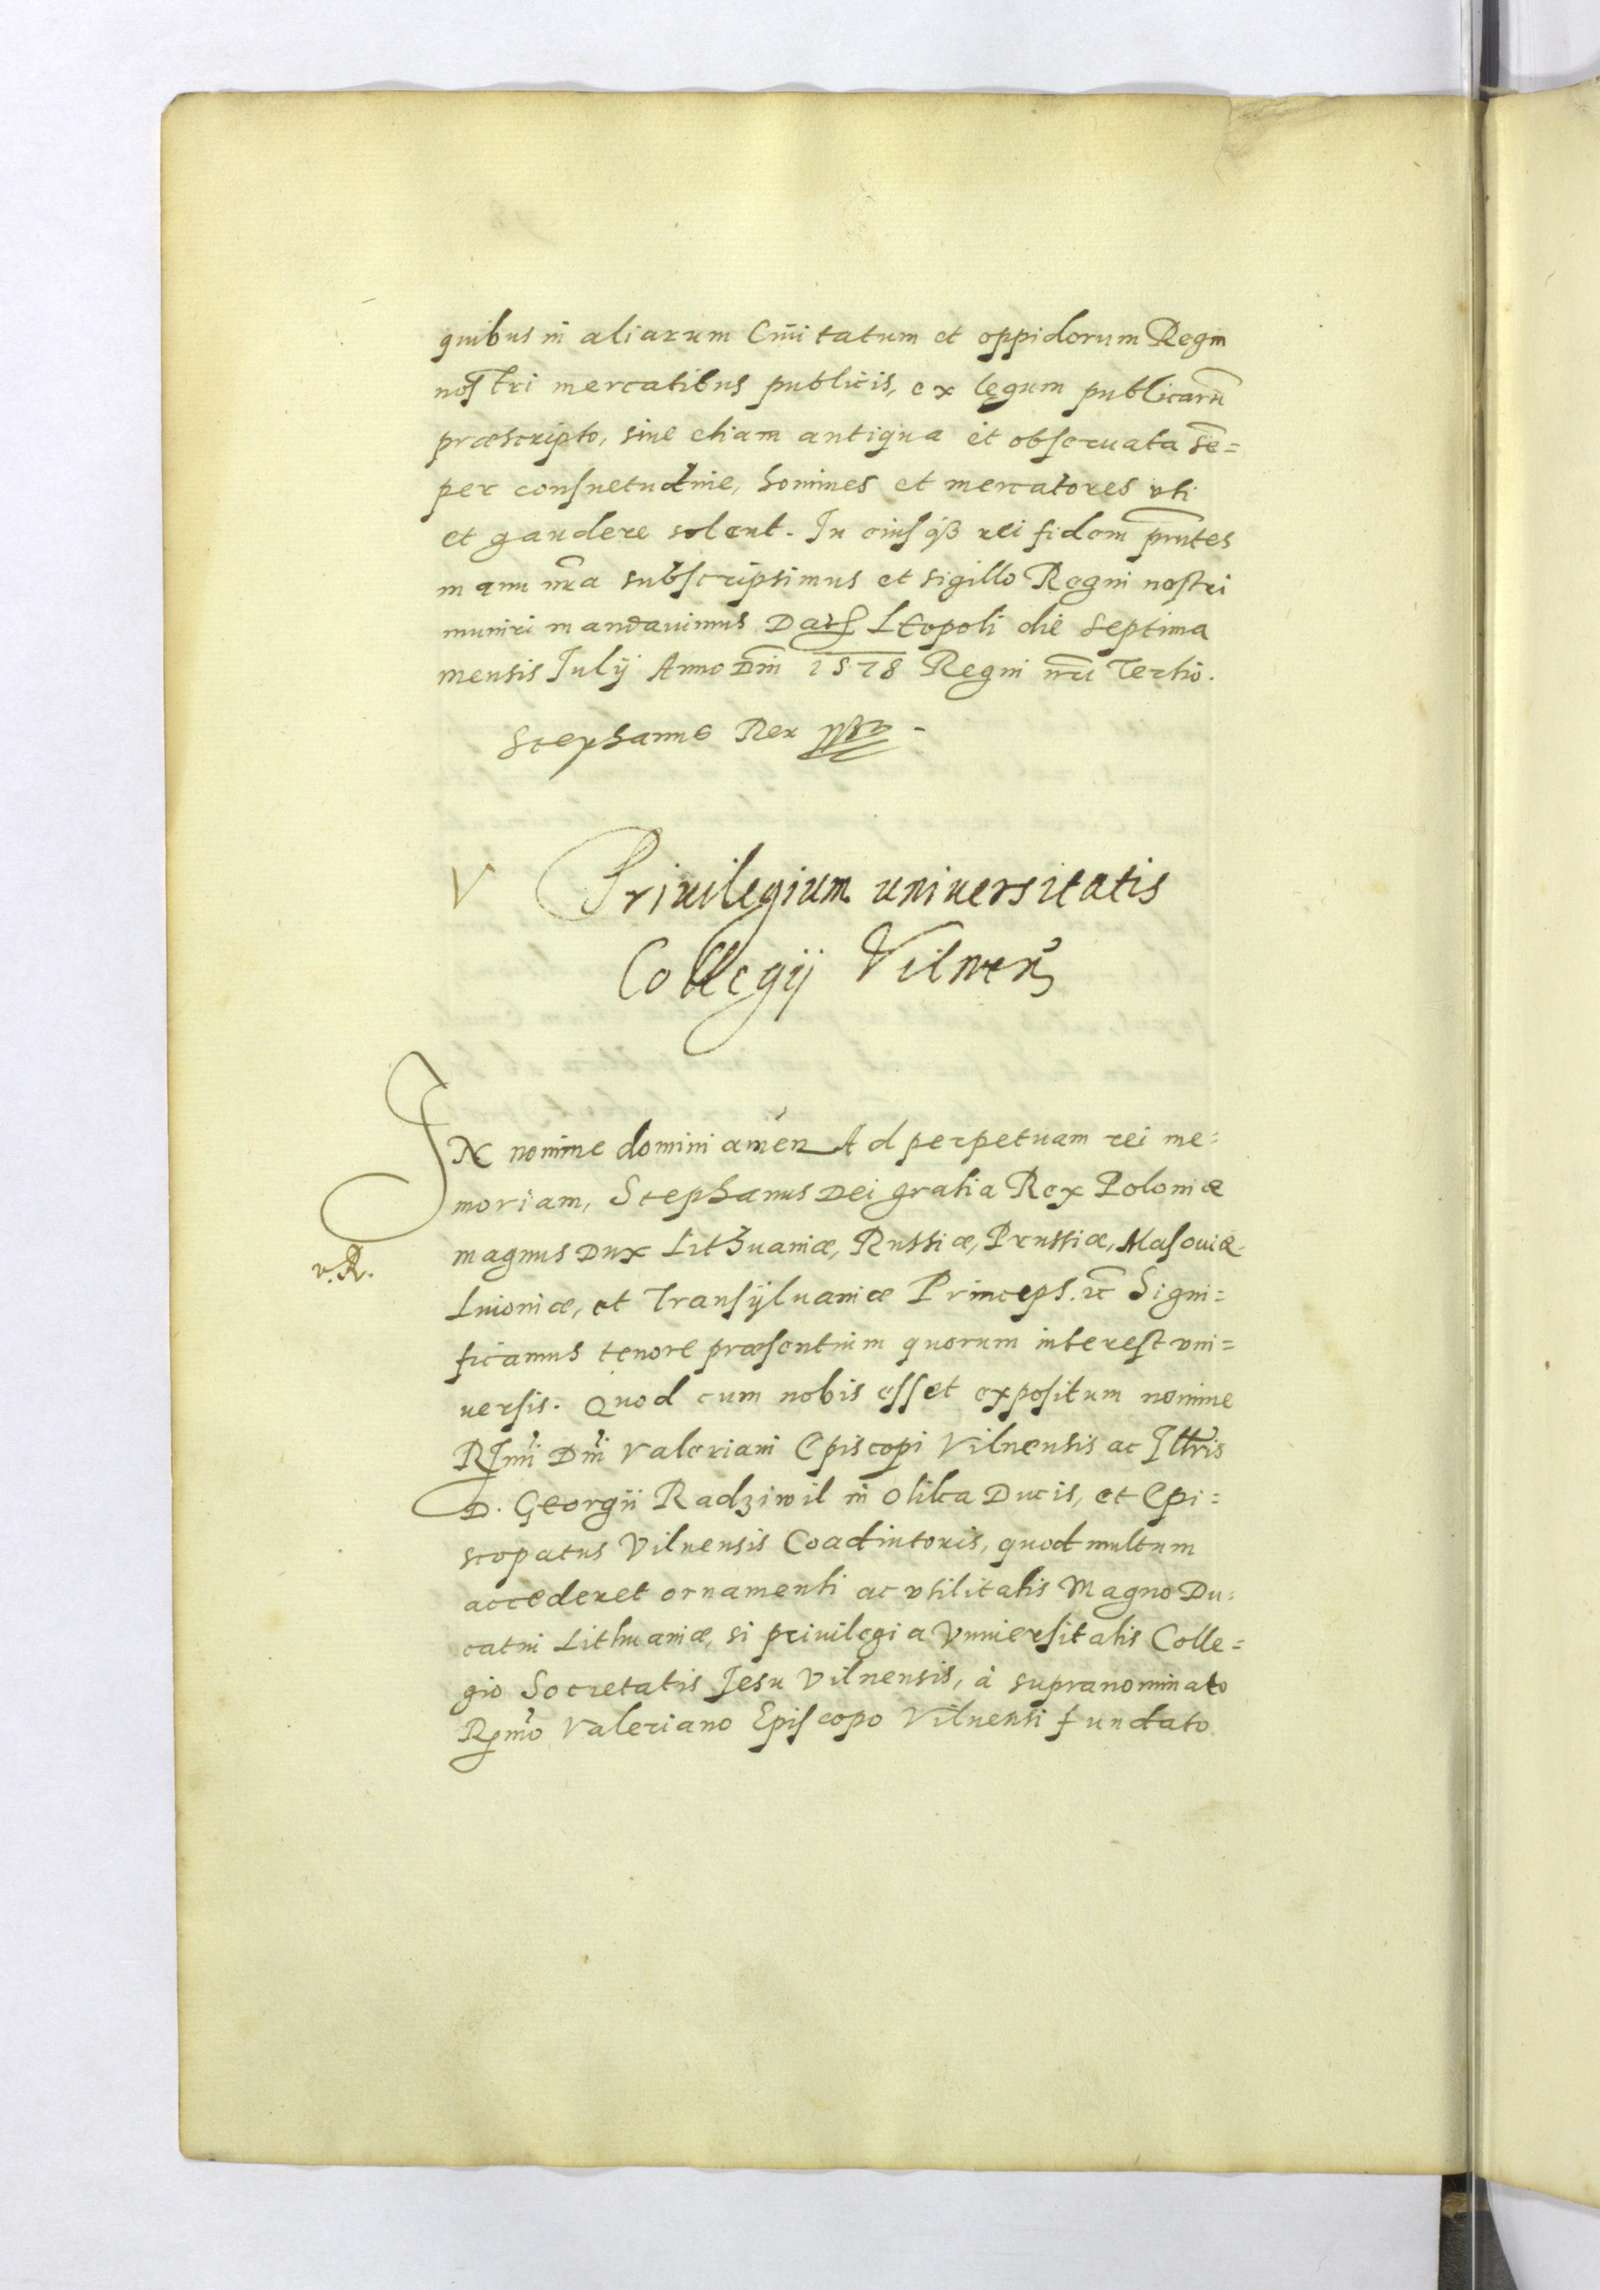 quibus in aliarum Ciuitatum et oppidorum Regni
nostri mercatibus publicis, ex legum publicarũ
præscripto, siue etiam antiqua et obseruata sẽ=
per consuetudine, homines et mercatores vti
et gaudere solent. In eiusqȝ rei fidem pñtes
manu nr̃a subscripsimus et sigillo Regni nostri
muniri mandauimus Dat Leopoli die septima
mensis Julij Anno Dñi 1578 Regni nr̃i Tertio.
Stephanus Rex
V Priuilegium uniuersitatis
Collegij Vilnen
IN nomine domini amen Ad perpetuam rei me=
moriam, Stephanus Dei gratia Rex Poloniæ
magnus Dux Lithuaniæ, Russiæ, Prussiæ, Masouiæ
v. R.
Liuoniæ, et Transyluaniæ Princeps. &c Signi=
ficamus tenore præsentium quorum interest vni=
uersis. Quod cum nobis esset expositum nomine
Rm̃i Dñi Valeriani Episcopi Vilnensis ac Illris
D. Georgii Radziwil in Olika Ducis, et Epi=
scopatus Vilnensis Coadiutoris, quod multum
accederet ornamenti ac vtilitatis Magno Du=
catui Lithuaniæ, si priuilegia Vniuersitatis Colle=
gio Societatis Jesu Vilnensis, à supranominato
Rmo Valeriano Episcopo Vilnensi fundato